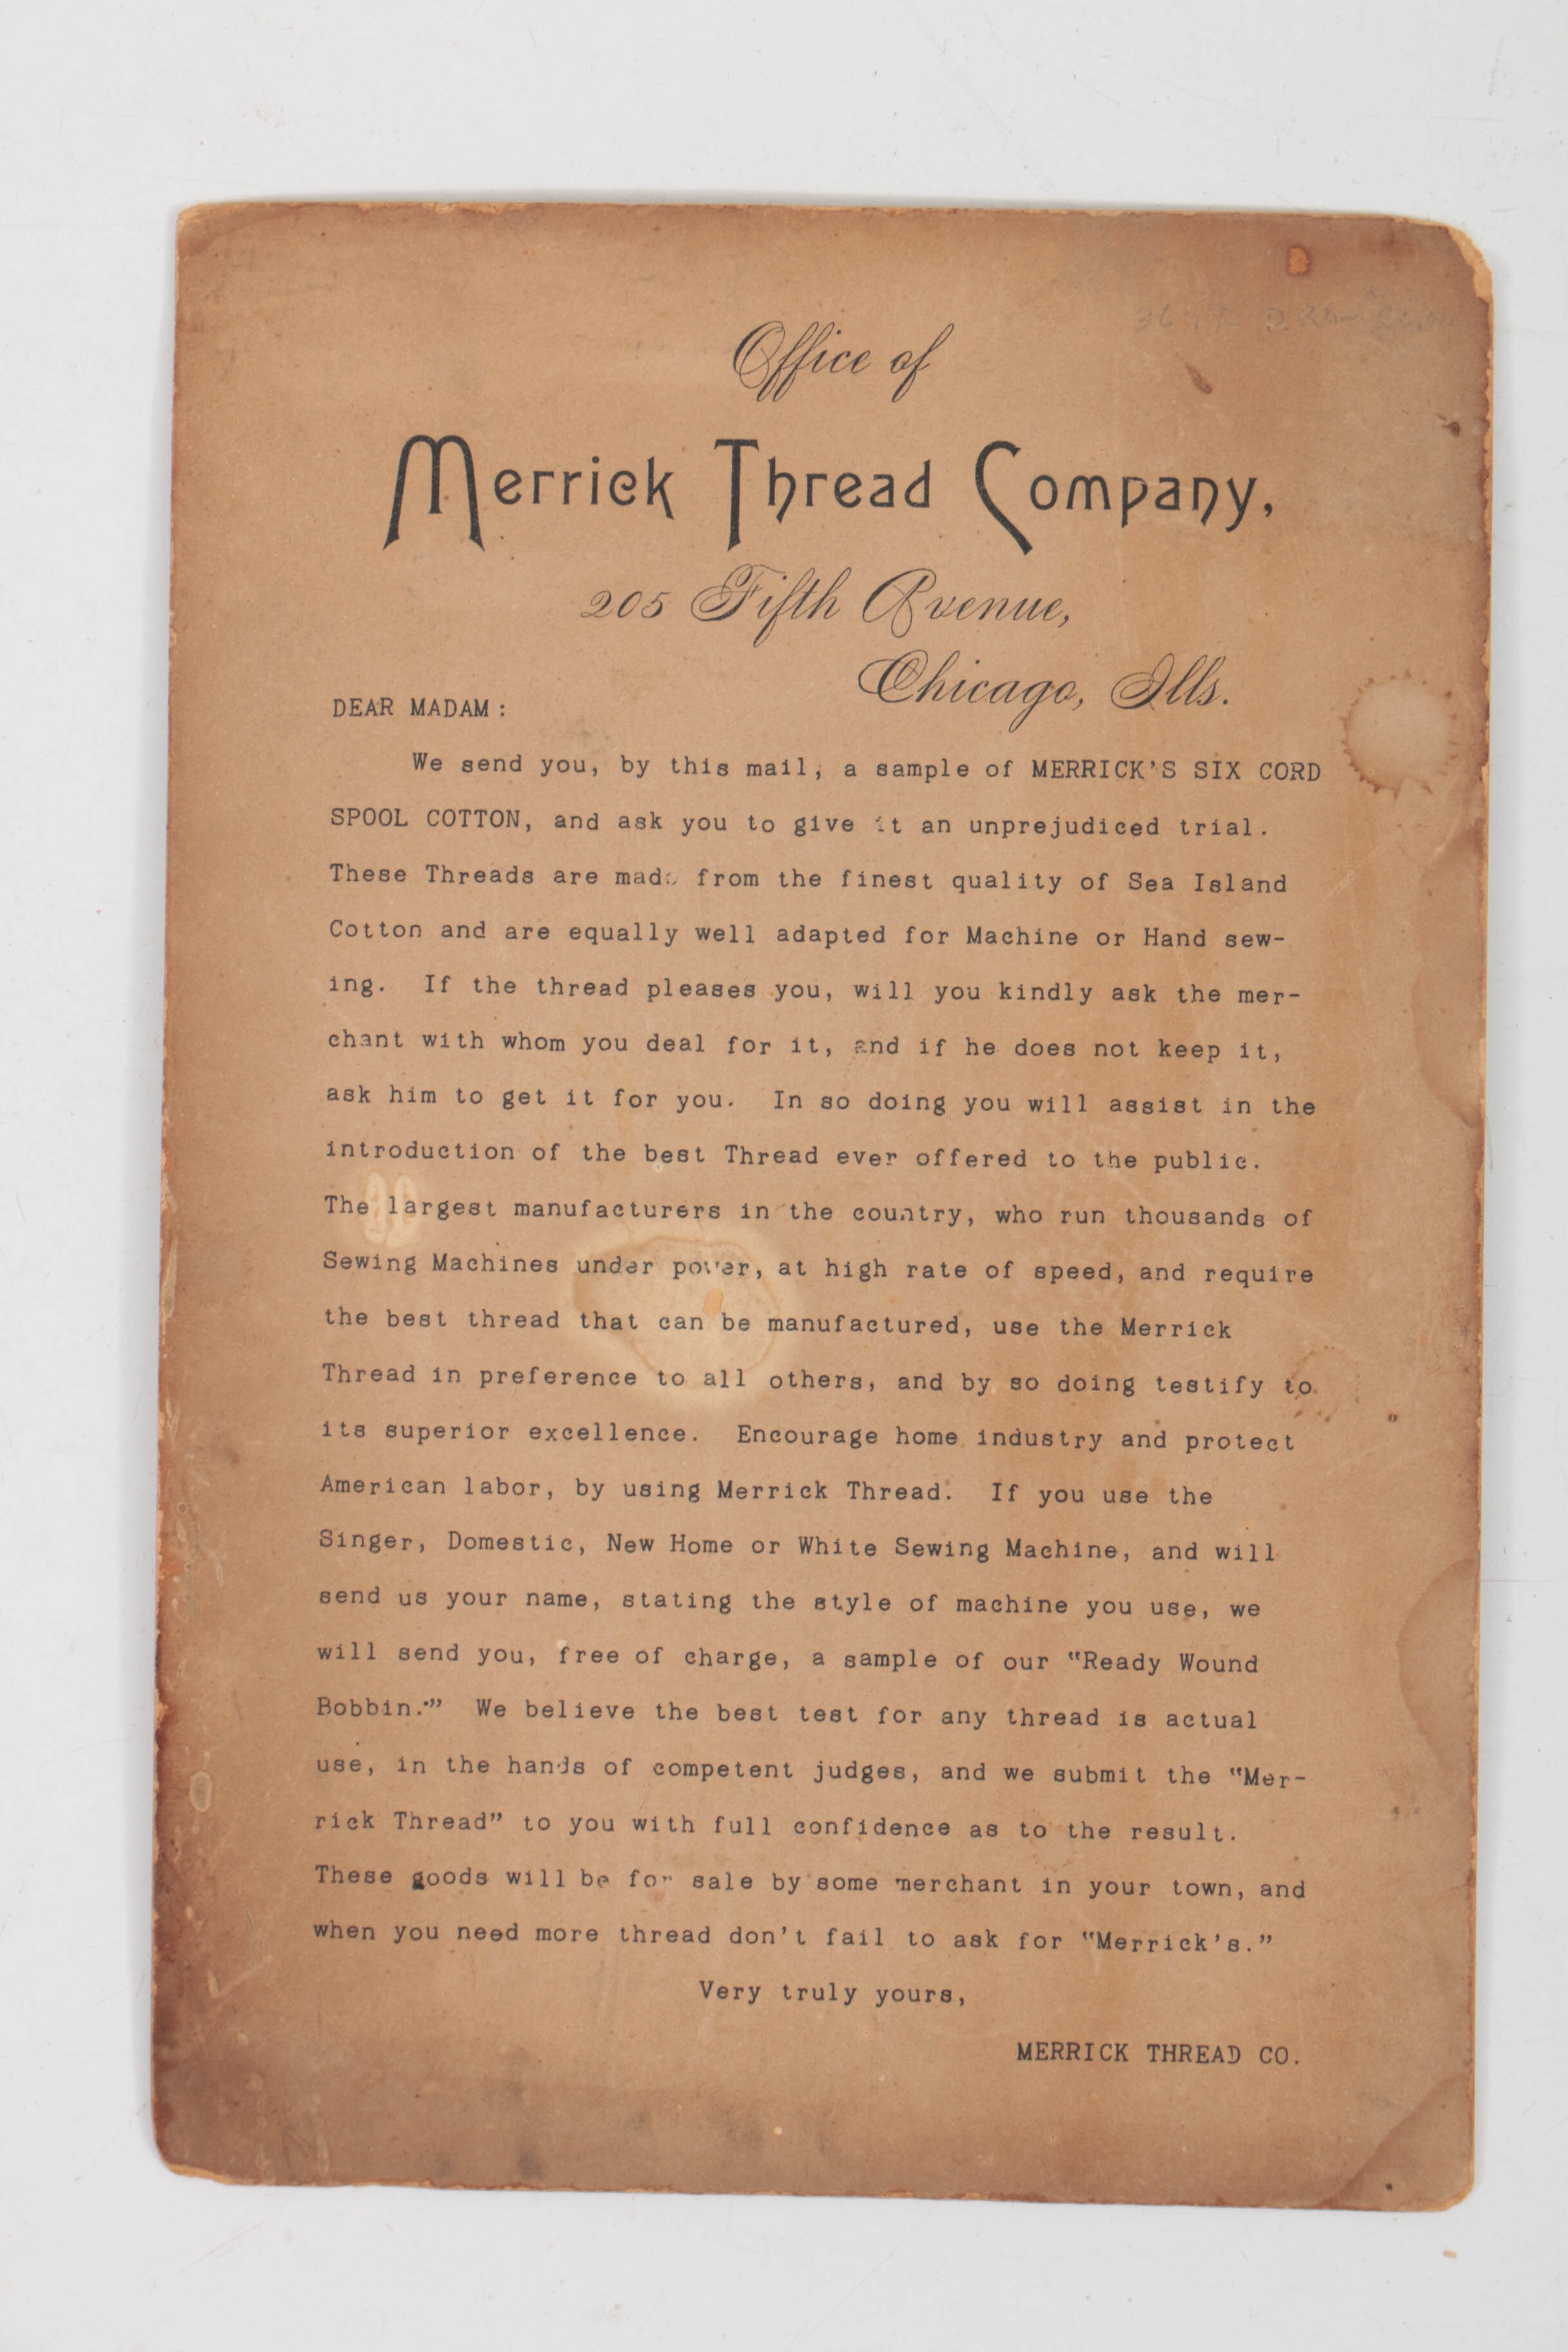 Office of
Merrick Thread Company,
205 Fifth Avenue,
Chicago, Ills.
DEAR MADAM:
We send you, by this mail, a sample of MERRICK'S SIX CORD
SPOOL COTTON, and ask you to give it an unprejudiced trial.
These Threads are made from the finest quality of Sea Island
Cotton and are equally well adapted for Machine or Hand sew-
ing. If the thread pleases you, will you kindly ask the mer-
chant with whom you deal for it, and if he does not keep it,
ask him to get it for you. In so doing you will assist in the
introduction of the best Thread ever offered to the public.
The largest manufacturers in the country, who run thousands of
Sewing Machines under power, at high rate of speed, and require
the best thread that can be manufactured, use the Merrick
Thread in preference to all others, and by so doing testify to
its superior excellence. Encourage home industry and protect
American labor, by using Merrick Thread. If you use the
Singer, Domestic, New Home or White Sewing Machine, and will
send us your name, stating the style of machine you use, we
will send you, free of charge, a sample of our "Ready Wound
Bobbin." We believe the best test for any thread is actual
use, in the hands of competent judges, and we submit the "Mer-
rick Thread" to you with full confidence as to the result.
These goods will be for sale by some merchant in your town, and
when you need more thread don't fail to ask for "Merrick's."
Very truly yours,
MERRICK THREAD CO.